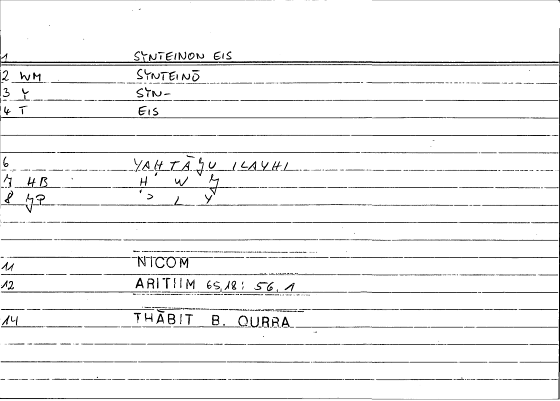 1 SYNTEINON EIS
2 WM SYNTEINŌ
3 Y SYN-
4 T EIS
6 YAḤTĀǦU ILAYHI
7 HB Ḥ W Ǧ
8 ǦP ʾ L Y
11 NICOM
12 ARITIIM 65,18: 56,1
14 THĀBIT B. QURRA